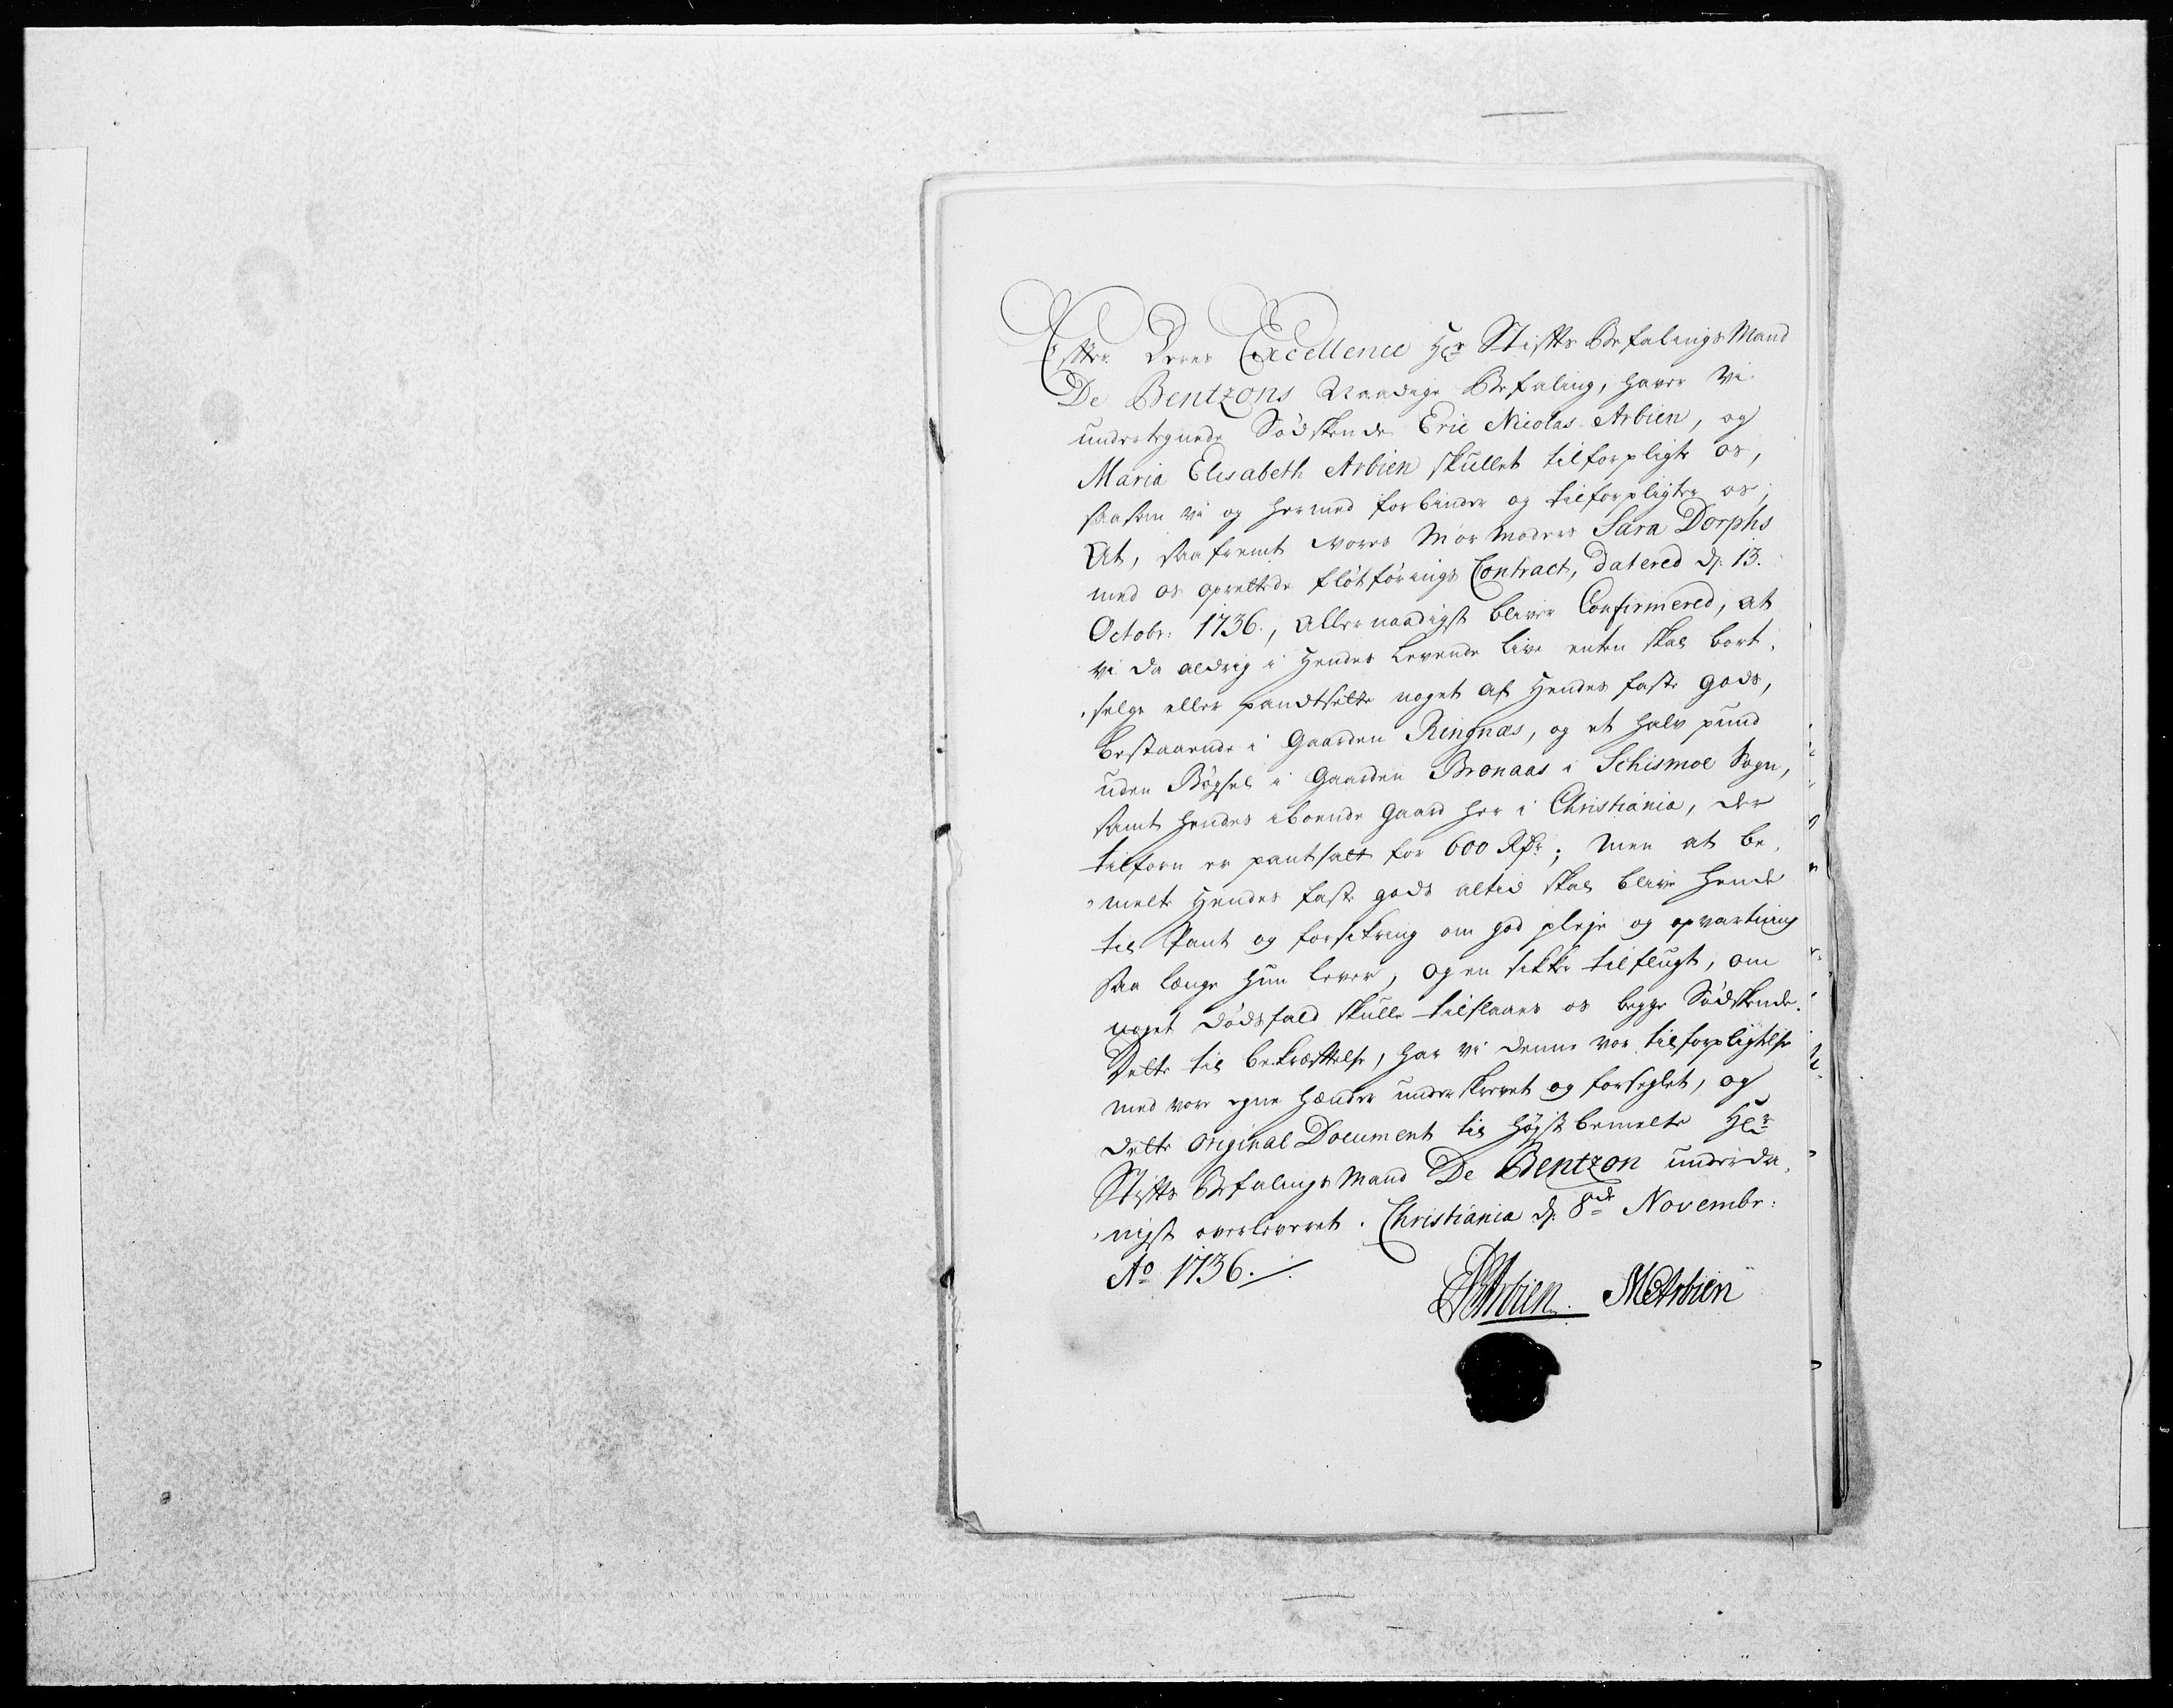 Efter Deres Excellence Hr: Stifts Befalings Mand
De Bentzons Naadige Befaling, haver Vi
undertegnede Sødskende Eric Nicolas Arbien, og
Maria Elisabeth Arbien skullet tilforpligte os,
saasom vi og hermed forbinder og tilforpligter os,
At, saafremt vores Mor Moders Sara Dorphs
med os oprettede fløtførings Contract, datered d: 13.
Octobr: 1736., Allernaadigst bliver Confirmered, at
vi da aldrig i Hendes Levende live enten skal bort-
selge eller pandtsette noget af Hendes faste gods,
bestaaende i Gaarden Ringnæs, og et halv pund
uden Bøgsel i Gaarden Bronaas i Schismoe Sogn,
samt hendes iboende gaard her i Christiania, der
tilforn er pantsatt for 600 Rdr; Men at be-
melte Hendes faste gods altid skal blive hende
til Pant og forsikring om god pleje og opvartning
saa længe hun lever, og en sikker tilflugt, om
noget dødsfald skulle tilslaaes os begge Sødskende.
Dette til bekræfftelse, har vi denne vor tilforpligtelse
med vore egne hænder underskrevet og forseglet, og
dette original Document til høystbemelte Hr:
Stifts Befalings Mand De Bentzon underda-
nigst overleveret. Christiania d: 8de Novembr:
Ao 1736./.
ENArbien. MEArbien